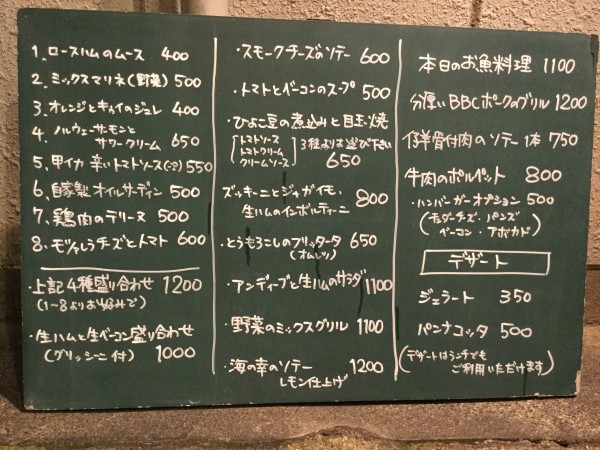 1. ロースハムのムース 400
2. ミックスマリネ(野菜) 500
3. オレンジとキウイのジュレ 400
4. ノルウェーサーモンと
サワークリーム 650
5. 甲イカ 辛いトマトソース 550
6. 自家製オイルサーディン 500
7. 鶏肉のテリーヌ 500
8. モッツァレラチーズとトマト 600
・上記4種盛り合わせ 1200
(1~8よりお好みで)
・生ハムと生ベーコン盛り合わせ
(グリッシーニ付) 1000
・スモークチーズのソテー 600
・トマトとベーコンのスープ 500
・ひよこ豆の煮込みと目玉焼
トマトソース
トマトクリーム
クリームソース
3種より お選び下さい
650
ズッキーニとジャガイモ、
生ハムのインボルティーニ 800
・とうもろこしのフリッタータ 650
(オムレツ)
・アンディーブと生ハムのサラダ 1100
・野菜のミックスグリル 1100
・海の幸のソテー 1200
レモン仕上げ
本日のお魚料理 1100
分厚いBBCポークのグリル 1200
仔羊骨付肉のソテー 1本 750
牛肉のポルペット 800
・ハンバーガーオプション 500
(チェダーチーズ・バンズ
ベーコン・アボカド)
デザート
ジェラート 350
パンナコッタ 500
(デザートはランチでも
ご利用いただけます)